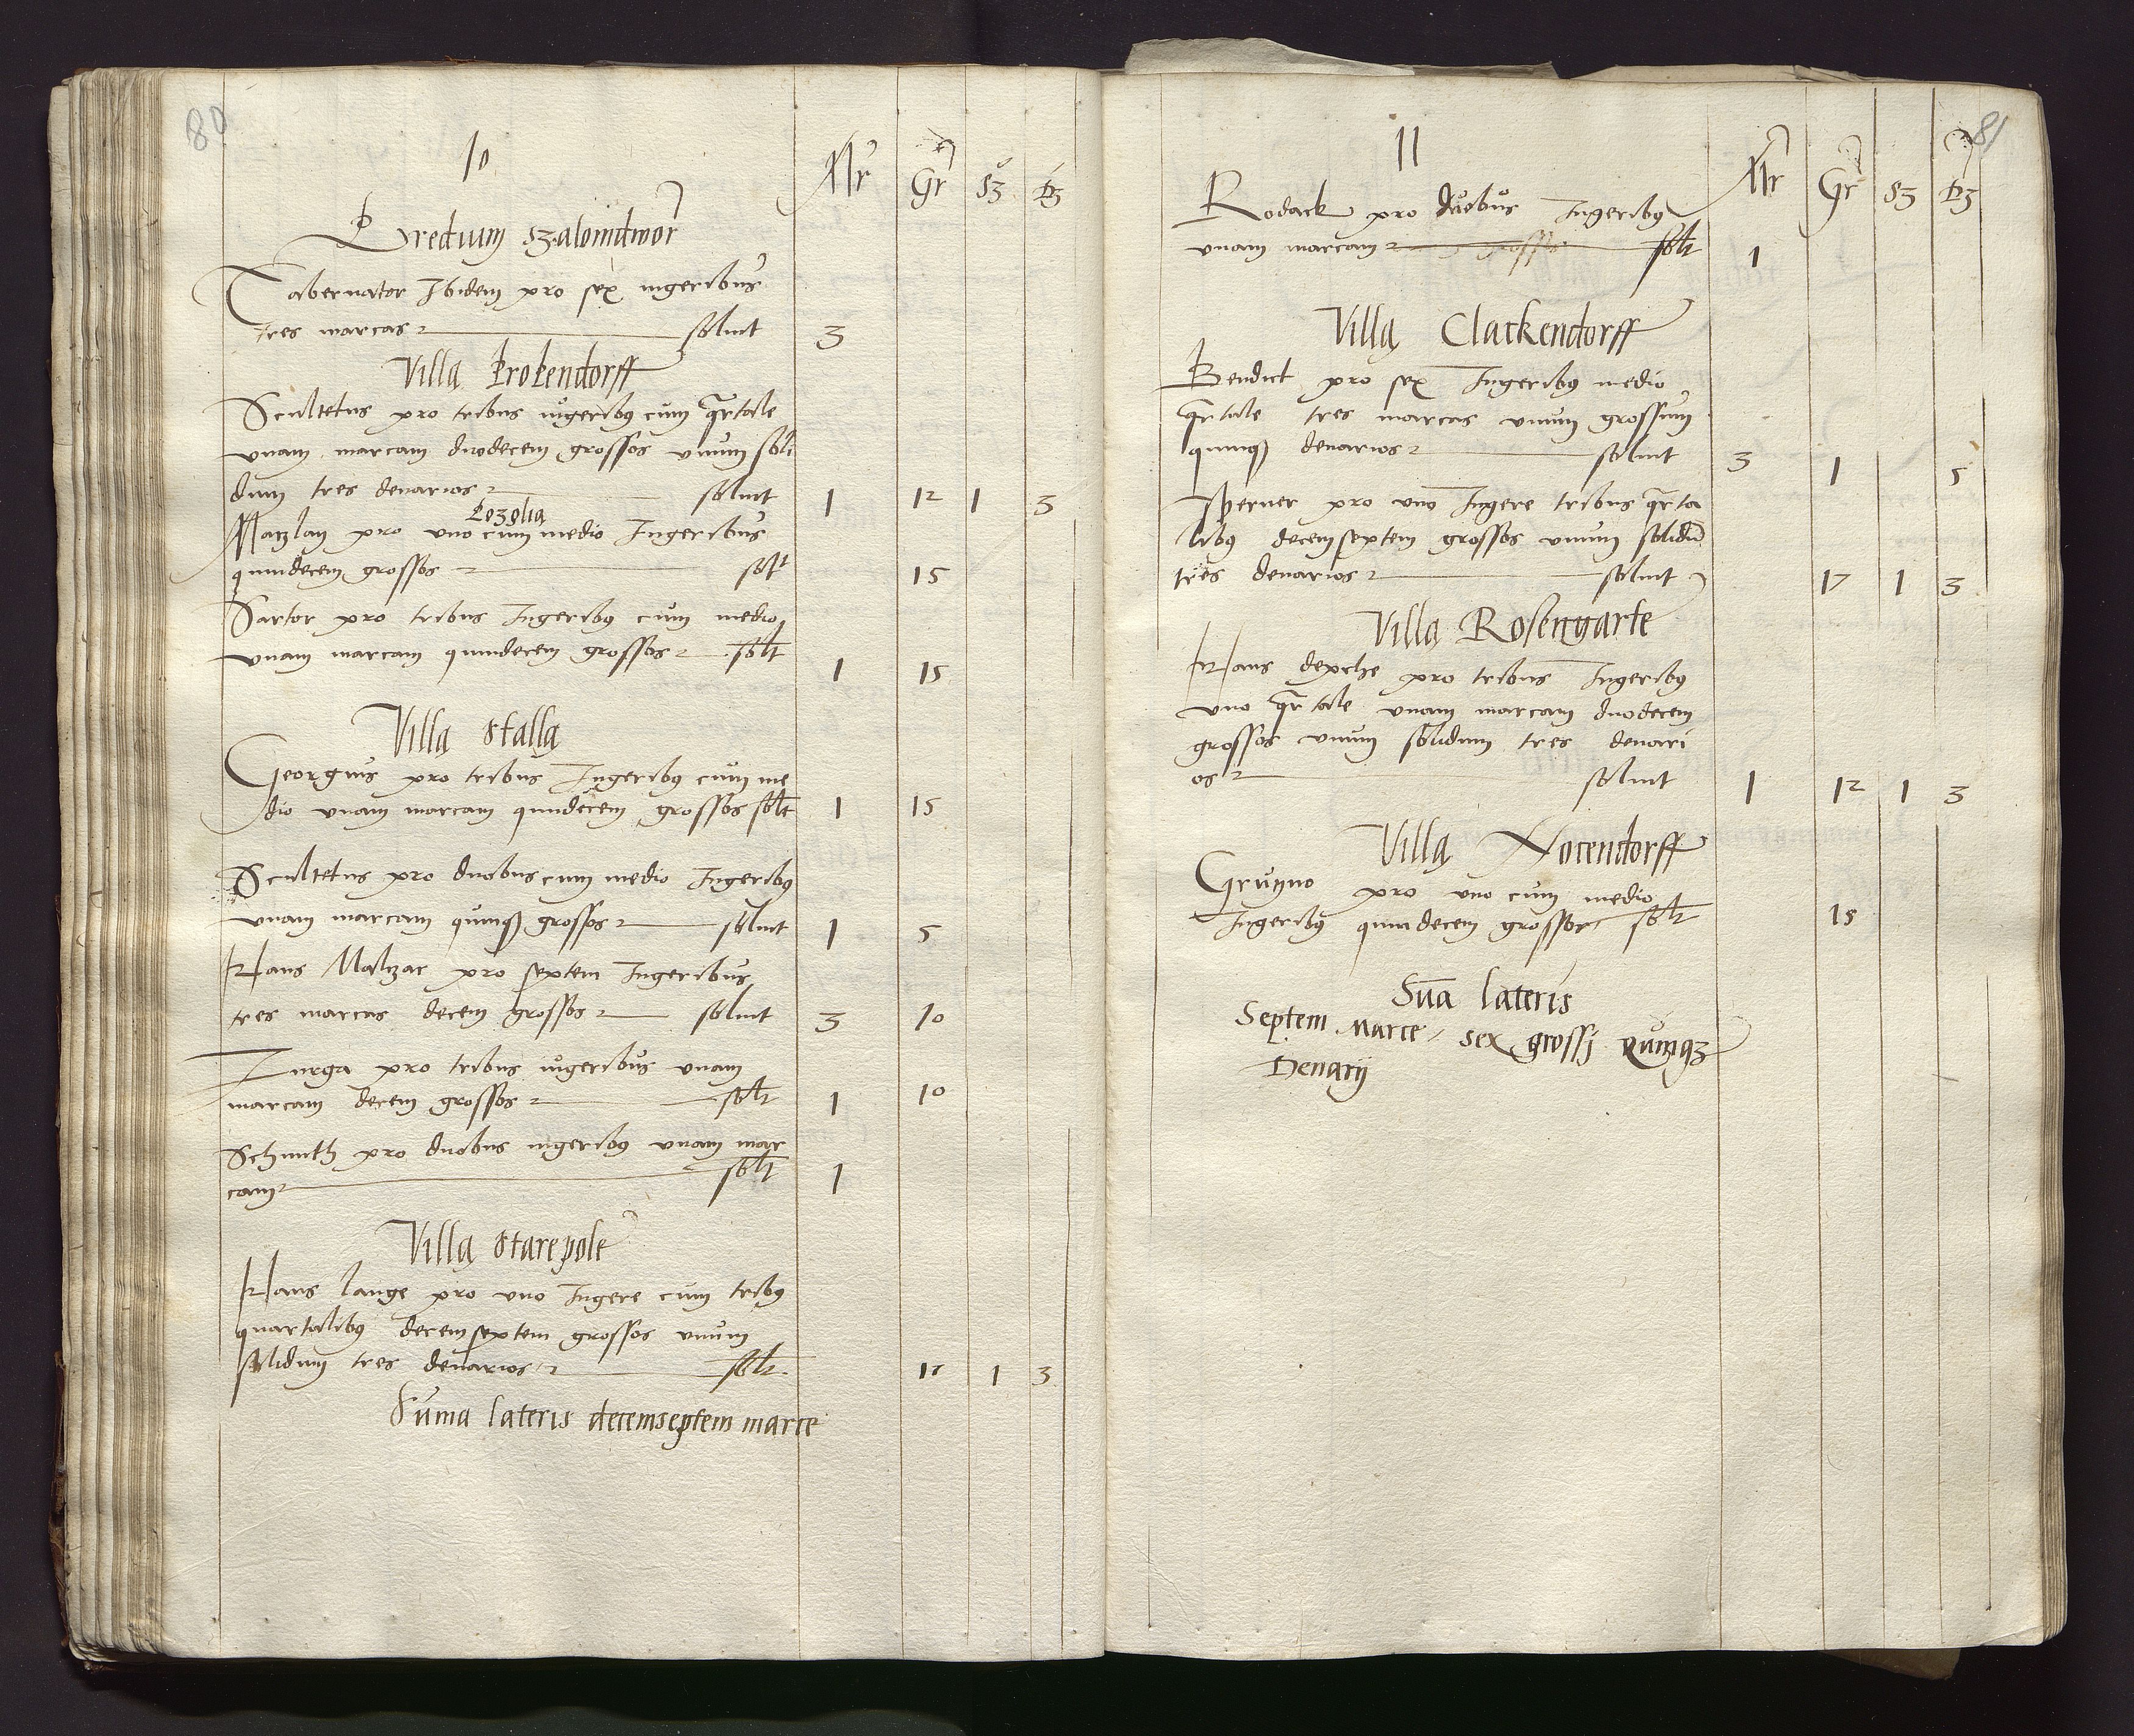 80
10
Mr Gr ẞ ₰
Predium szaloindwor
Tabernator Ibidem pro sex iugeribus
tres marcas soluit 3
Villa krokendorff
Scultetus pro tribus iugeribus cum qrtale
vnam marcam duodecem grossos vnum soli
dum tres denarios soluit 1 12 1 3
Lozolia
Matzlan pro uno cum medio Iugeribus
quindecem grossos solt 15
Sartor pro tribus Iugeribus cum medio
vnam marcam quindecem grossos solt 1 15
Villa stalla
Georgius pro tribus Iugeribus cum me
dio vnam marcam quindecem grossos solt 1 15
Scultetus pro duobus cum medio Iugeribus
vnam marcam quinqz grossos soluit 1 5
Hans Malzar pro septem Iugeribus
tres marcas decem grossos soluit 3 10
Lurga pro tribus iugeribus vnam
marcam decem grossos solt 1 10
Schmith pro duobus iugeribus vnam mar
cam solt 1
Villa starepole
Hans lange pro vno Iugere cum tribus
quartalibus decemseptem grossos vnum
solidum tres denarios solt 17 1 3
Suma lateris decemseptem marce
81
11
Mr Gr ẞ ₰
Rodack pro duobus Iugeribus
vnam marcam grossos solt 1
Villa Clackendorff
Bendict pro sex Iugeribus medio
qrtale tres marcas vnum grossum
quinqz denarios soluit 3 1 5
Sperner pro vno Iugere tribus qrta
libus decemseptem grossos vnum solidū
tres denarios soluit 17 1 3
Villa Rosengarte
Hans depche pro tribus Iugeribus
vno qrtale vnam marcam duodecem
grossos vnum solidum tres denari
os soluit 1 12 1 3
Villa Nocendorff
Grunno pro vno cum medio
Iugeribus quindecem grossos solt 15
Sūa lateris
Septem Marce sex grossj Quinqz
Denarij